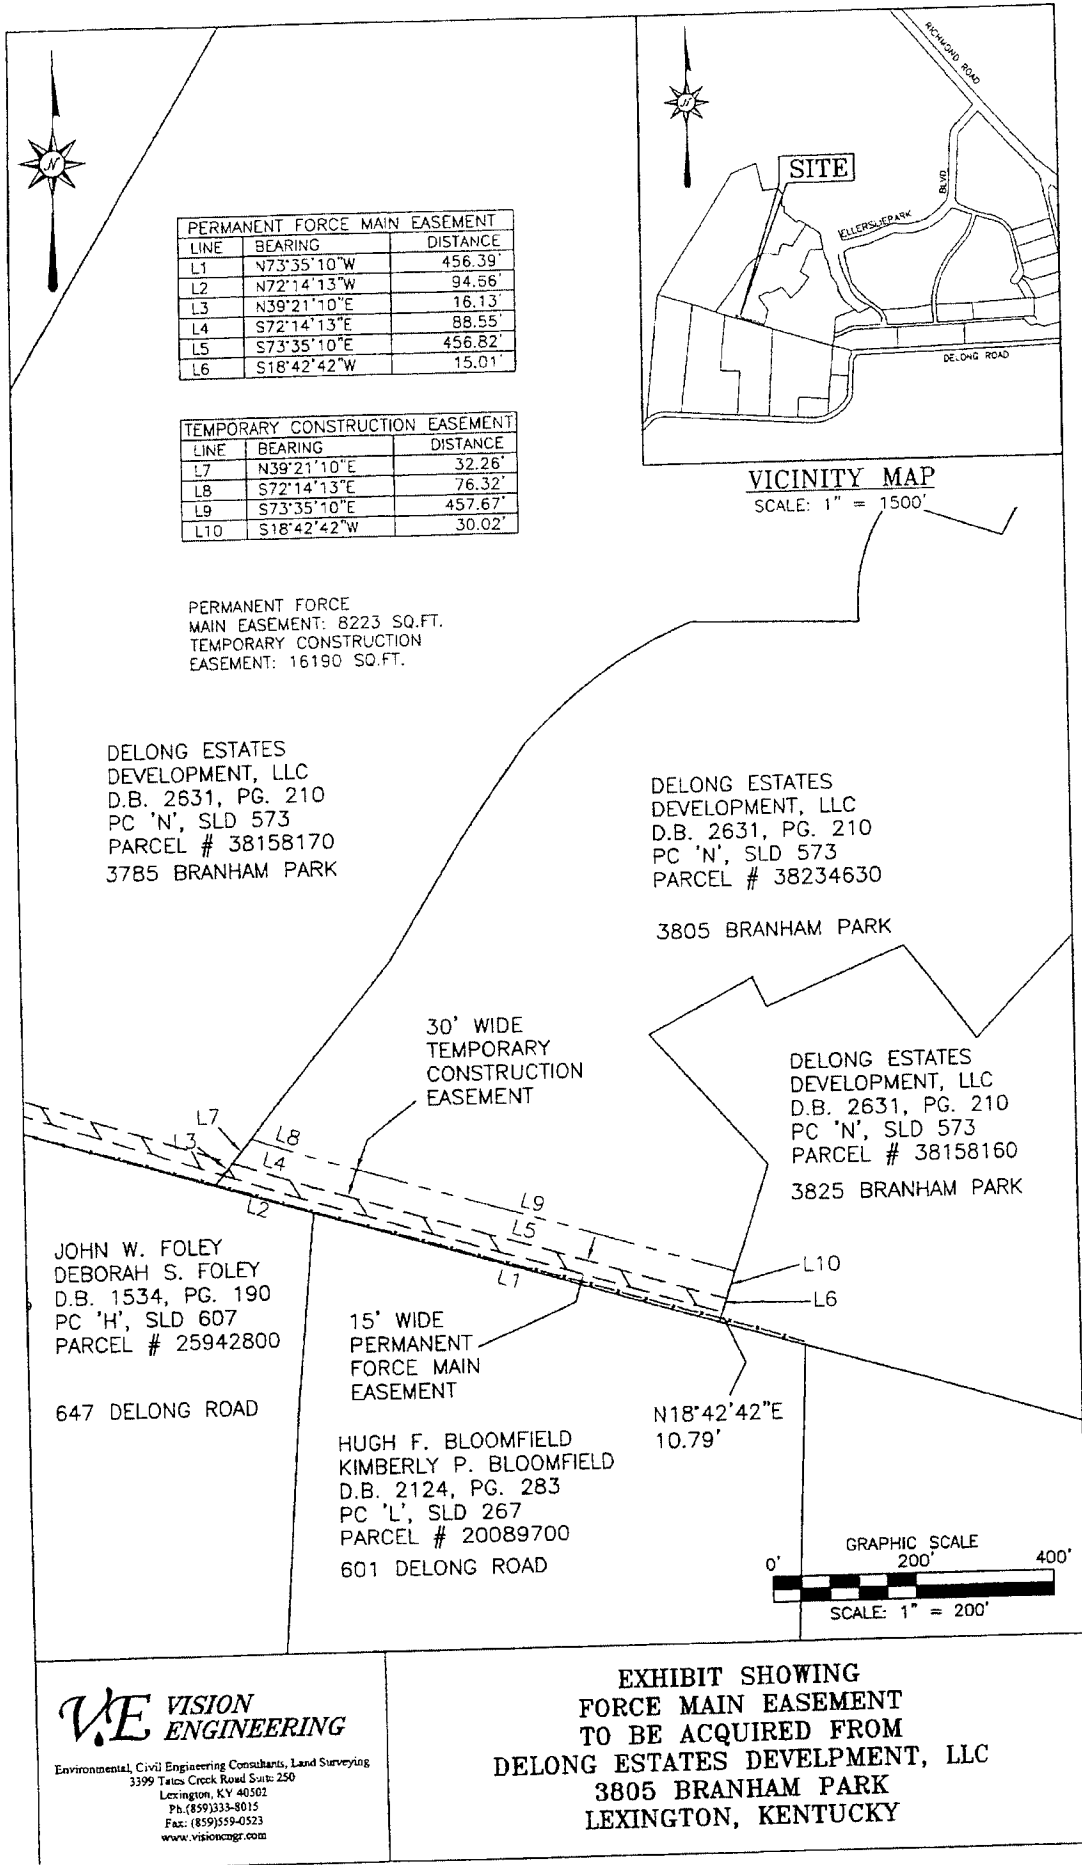 N
RICHMOND ROAD
N
SITE
BLVD
ELLERSLIE PARK
DELONG ROAD
VICINITY MAP
SCALE: 1" = 1500'
PERMANENT FORCE MAIN EASEMENT
LINE BEARING DISTANCE
L1 N73°35'10"W 456.39'
L2 N72°14'13"W 94.56'
L3 N39°21'10"E 16.13'
L4 S72°14'13"E 88.55'
L5 S73°35'10"E 456.82'
L6 S18°42'42"W 15.01'
TEMPORARY CONSTRUCTION EASEMENT
LINE BEARING DISTANCE
L7 N39°21'10"E 32.26'
L8 S72°14'13"E 76.32'
L9 S73°35'10"E 457.67'
L10 S18°42'42"W 30.02'
PERMANENT FORCE
MAIN EASEMENT: 8223 SQ.FT.
TEMPORARY CONSTRUCTION
EASEMENT: 16190 SQ.FT.
DELONG ESTATES
DEVELOPMENT, LLC
D.B. 2631, PG. 210
PC 'N', SLD 573
PARCEL # 38158170
3785 BRANHAM PARK
DELONG ESTATES
DEVELOPMENT, LLC
D.B. 2631, PG. 210
PC 'N', SLD 573
PARCEL # 38234630
3805 BRANHAM PARK
30' WIDE
TEMPORARY
CONSTRUCTION
EASEMENT
DELONG ESTATES
DEVELOPMENT, LLC
D.B. 2631, PG. 210
PC 'N', SLD 573
PARCEL # 38158160
3825 BRANHAM PARK
L7
L3
L8
L4
L2
L9
L5
L1
L10
L6
JOHN W. FOLEY
DEBORAH S. FOLEY
D.B. 1534, PG. 190
PC 'H', SLD 607
PARCEL # 25942800
647 DELONG ROAD
15' WIDE
PERMANENT
FORCE MAIN
EASEMENT
N18°42'42"E
10.79'
HUGH F. BLOOMFIELD
KIMBERLY P. BLOOMFIELD
D.B. 2124, PG. 283
PC 'L', SLD 267
PARCEL # 20089700
601 DELONG ROAD
GRAPHIC SCALE
0' 200' 400'
SCALE: 1" = 200'
VE VISION
ENGINEERING
Environmental, Civil Engineering Consultants, Land Surveying
3399 Tates Creek Road Suite 250
Lexington, KY 40502
Ph.(859)333-8015
Fax: (859)559-0523
www.visionengr.com
EXHIBIT SHOWING
FORCE MAIN EASEMENT
TO BE ACQUIRED FROM
DELONG ESTATES DEVELPMENT, LLC
3805 BRANHAM PARK
LEXINGTON, KENTUCKY